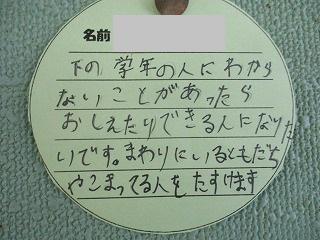 名前
下の学年の人にわから
ないことがあったら
おしえたりできる人になりた
いです。まわりにいるともだち
やこまってる人をたすけます